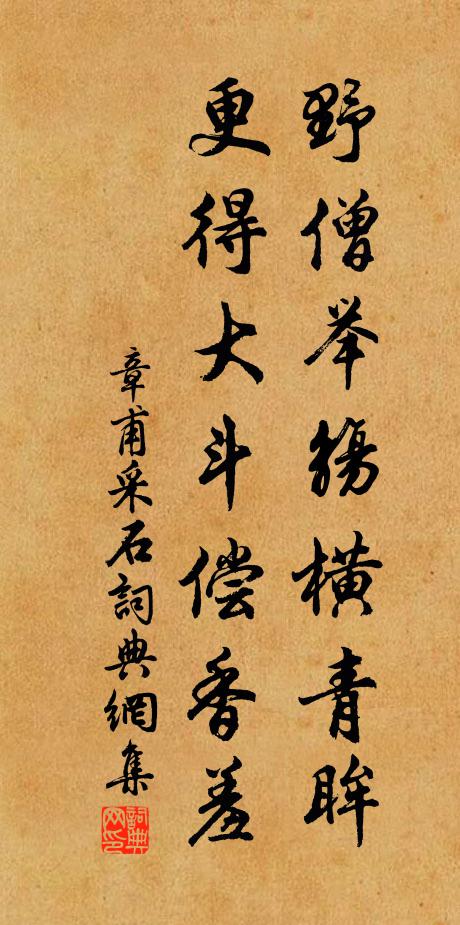 野僧举觞横青眸
更得大斗偿香羞
章甫采石詞典網集
詞典网印